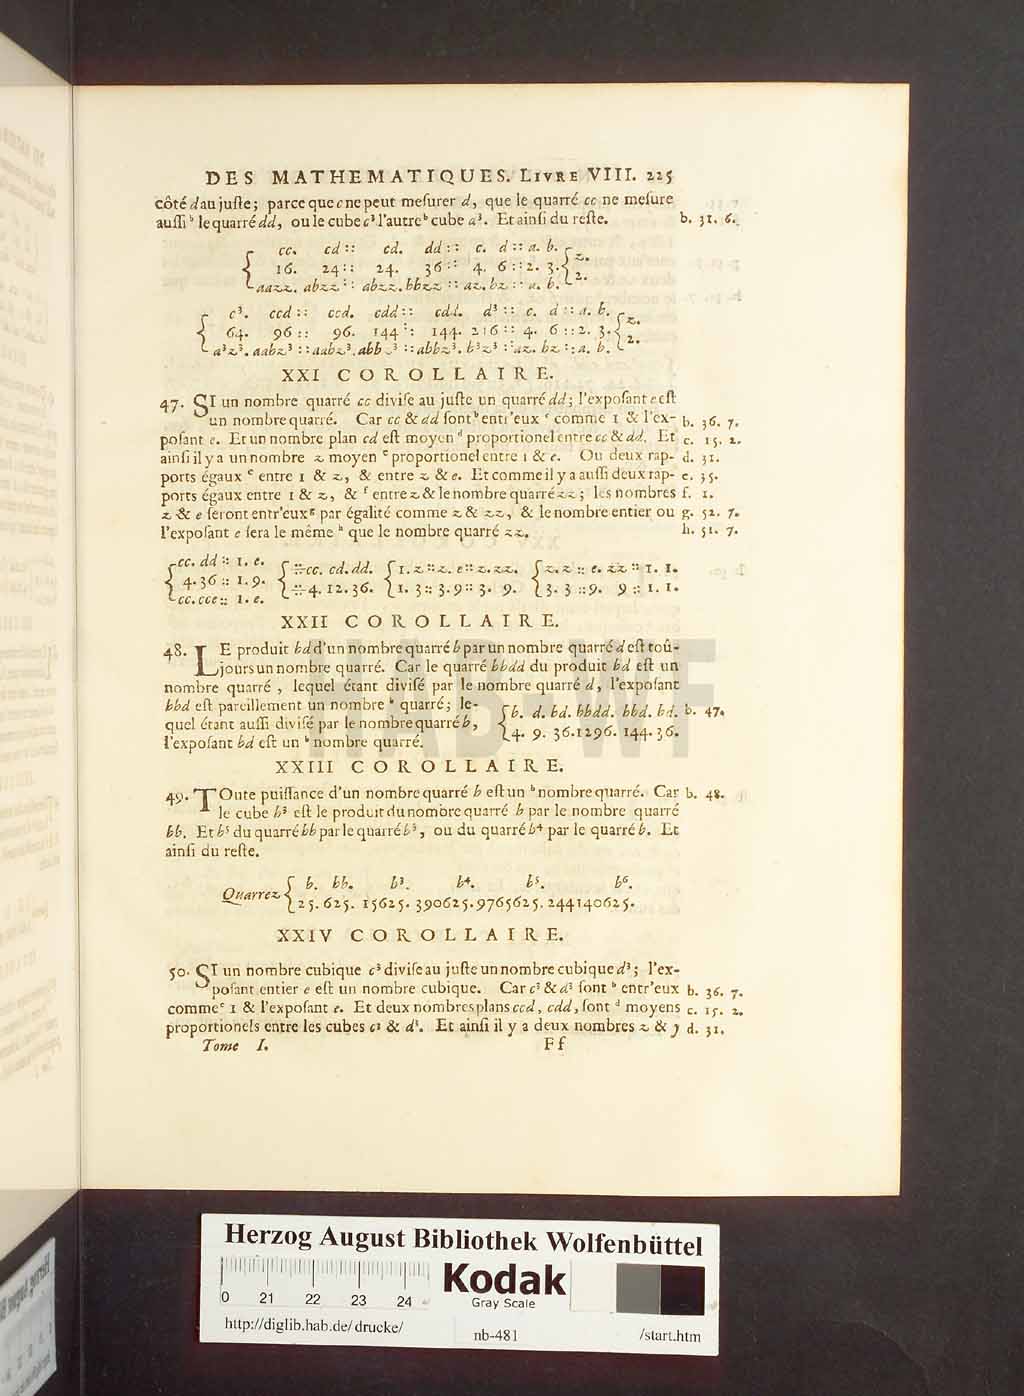 DES MATHEMATIQUES. LIVRE VIII. 225
côté d au juſte; parce que c ne peut meſurer d, que le quarré cc ne meſure
auſſi ᵇ le quarré dd, ou le cube c³ l'autre ᵇ cube d³. Et ainſi du reſte. b. 31. 6.
cc. cd :: cd. dd :: c. d :: a. b.
16. 24 :: 24. 36 :: 4. 6 :: 2. 3. { z.
aazz. abzz :: abzz. bbzz :: az. bz :: a. b. 2.
c³. ccd :: ccd. cdd :: cdd. d³ :: c. d :: a. b.
64. 96 :: 96. 144 :: 144. 216 :: 4. 6 :: 2. 3. { z.
a³z³. aabz³ :: aabz³. abbz³ :: abbz³. b³z³ :: az. bz :: a. b. 2.
XXI COROLLAIRE.
47. SI un nombre quarré cc diviſe au juſte un quarré dd; l'expoſant e eſt
un nombre quarré. Car cc & dd ſont ᵇ entr'eux ᶜ comme 1 & l'ex- b. 36. 7.
poſant e. Et un nombre plan cd eſt moyen ᵈ proportionel entre cc & dd. Et c. 15. 2.
ainſi il y a un nombre z moyen ᵉ proportionel entre 1 & e. Ou deux rap- d. 31.
ports égaux ᵉ entre 1 & z, & entre z & e. Et comme il y a auſſi deux rap- e. 35.
ports égaux entre 1 & z, & ᶠ entre z & le nombre quarré zz; les nombres f. 1.
z & e ſeront entr'eux ᵍ par égalité comme z & zz, & le nombre entier ou g. 52. 7.
l'expoſant e ſera le même ʰ que le nombre quarré zz. h. 51. 7.
cc. dd :: 1. e. { ÷ cc. cd. dd. { 1. z :: z. e :: z. zz. { z. z :: e. zz :: 1. 1.
4. 36 :: 1. 9. { ÷ 4. 12. 36. { 1. 3 :: 3. 9 :: 3. 9. { 3. 3 :: 9. 9 :: 1. 1.
cc. cce :: 1. e.
XXII COROLLAIRE.
48. LE produit bd d'un nombre quarré b par un nombre quarré d eſt toû-
jours un nombre quarré. Car le quarré bbdd du produit bd eſt un
nombre quarré, lequel étant diviſé par le nombre quarré d, l'expoſant
bbd eſt pareillement un nombre ᵇ quarré; le-
quel étant auſſi diviſé par le nombre quarré b, { b. d. bd. bbdd. bbd. bd. b. 47.
l'expoſant bd eſt un ᵇ nombre quarré. 4. 9. 36. 1296. 144. 36.
XXIII COROLLAIRE.
49. TOute puiſſance d'un nombre quarré b eſt un ᵇ nombre quarré. Car b. 48.
le cube b³ eſt le produit du nombre quarré b par le nombre quarré
bb. Et b⁵ du quarré bb par le quarré b³, ou du quarré b⁴ par le quarré b. Et
ainſi du reſte.
b. bb. b³. b⁴. b⁵. b⁶.
Quarrez { 25. 625. 15625. 390625. 9765625. 244140625.
XXIV COROLLAIRE.
50. SI un nombre cubique c³ diviſe au juſte un nombre cubique d³; l'ex-
poſant entier e eſt un nombre cubique. Car c³ & d³ ſont ᵇ entr'eux b. 36. 7.
comme ᶜ 1 & l'expoſant e. Et deux nombres plans ccd, cdd, ſont ᵈ moyens c. 15. 2.
proportionels entre les cubes c³ & d³. Et ainſi il y a deux nombres z & y d. 31.
Tome I. Ff
HAB-WF
Herzog August Bibliothek Wolfenbüttel
0 21 22 23 24
Kodak
Gray Scale
http://diglib.hab.de/drucke/ nb-481 /start.htm